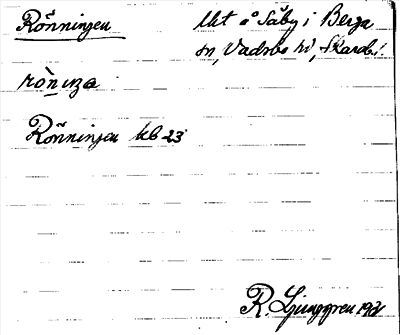 Rönningen
Ukt å Säby i Berga
sn, Vadsbo hd, Skarab.l.
rò̀nıŋa
Rönningen kb 23
R. Ljunggren